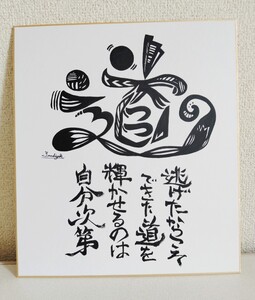 道
逃げたからこそ
できた道を
輝かせるのは
自分次第